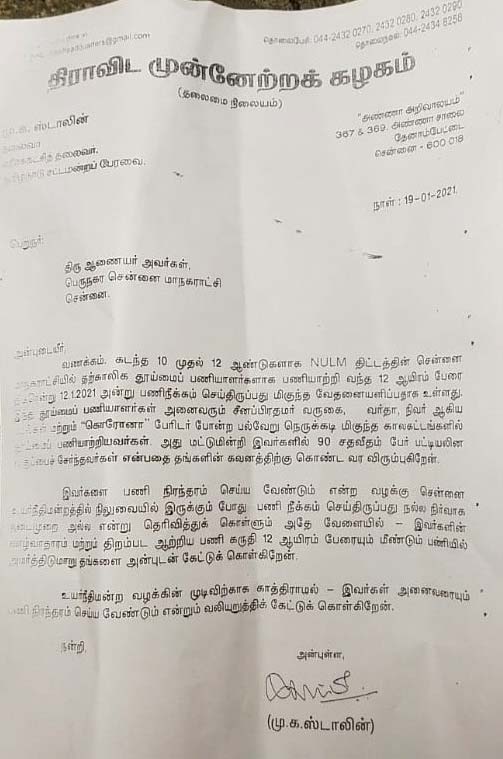 தொலைபேசி: 044-2432 0270, 2432 0280, 2432 0290
தொலைநகல்: 044-2434 8258
திராவிட முன்னேற்றக் கழகம்
(தலைமை நிலையம்)
மு.க. ஸ்டாலின்
தலைவர்
எதிர்க்கட்சித் தலைவர்,
தமிழ்நாடு சட்டமன்றப் பேரவை.
"அண்ணா அறிவாலயம்"
367 & 369, அண்ணா சாலை
தேனாம்பேட்டை
சென்னை - 600 018
நாள் : 19-01-2021.
பெறுநர்:
திரு ஆணையர் அவர்கள்,
பெருநகர சென்னை மாநகராட்சி
சென்னை.
அன்புடையீர்,
வணக்கம். கடந்த 10 முதல் 12 ஆண்டுகளாக NULM திட்டத்தின் சென்னை
மாநகராட்சியில் தற்காலிக தூய்மைப் பணியாளர்களாக பணியாற்றி வந்த 12 ஆயிரம் பேரை
12.1.2021 அன்று பணிநீக்கம் செய்திருப்பது மிகுந்த வேதனையளிப்பதாக உள்ளது.
இந்த தூய்மைப் பணியாளர்கள் அனைவரும் சீனப்பிரதமர் வருகை, வர்தா, நிவர் ஆகிய
மற்றும் "கொரோனா" பேரிடர் போன்ற பல்வேறு நெருக்கடி மிகுந்த காலகட்டங்களில்
பணியாற்றியவர்கள். அது மட்டுமின்றி இவர்களில் 90 சதவீதம் பேர் பட்டியலின
சேர்ந்தவர்கள் என்பதை தங்களின் கவனத்திற்கு கொண்ட வர விரும்புகிறேன்.
இவர்களை பணி நிரந்தரம் செய்ய வேண்டும் என்ற வழக்கு சென்னை
உயர்நீதிமன்றத்தில் நிலுவையில் இருக்கும் போது பணி நீக்கம் செய்திருப்பது நல்ல நிர்வாக
நடைமுறை அல்ல என்று தெரிவித்துக் கொள்ளும் அதே வேளையில் – இவர்களின்
வாழ்வாதாரம் மற்றும் திறம்பட ஆற்றிய பணி கருதி 12 ஆயிரம் பேரையும் மீண்டும் பணியில்
அமர்த்திடுமாறு தங்களை அன்புடன் கேட்டுக் கொள்கிறேன்.
உயர்நீதிமன்ற வழக்கின் முடிவிற்காக காத்திராமல் – இவர்கள் அனைவரையும்
பணி நிரந்தரம் செய்ய வேண்டும் என்றும் வலியுறுத்திக் கேட்டுக் கொள்கிறேன்.
நன்றி,
அன்புள்ள,
(மு.க.ஸ்டாலின்)